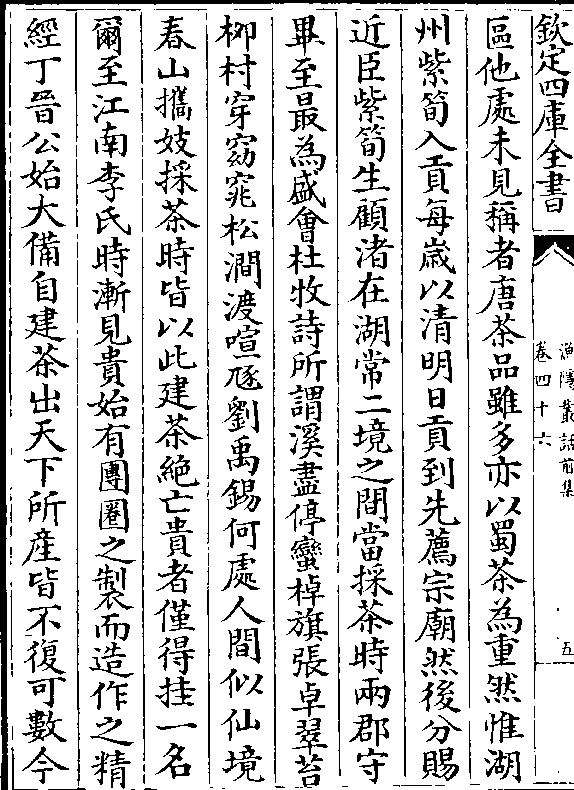 欽定四庫全書
漁隱叢話前集
卷四十六
五
區他處未見稱者唐茶品雖多亦以蜀茶為重然惟湖
州紫筍入貢每歲以清明日貢到先薦宗廟然後分賜
近臣紫筍生顧渚在湖常二境之間當採茶時兩郡守
畢至最為盛會杜牧詩所謂溪盡停蠻棹旗張卓翠苔
柳村穿窈窕松澗渡喧豗劉禹錫何處人間似仙境
春山攜妓採茶時皆以此建茶絶亡貴者僅得挂一名
爾至江南李氏時漸見貴始有團圈之製而造作之精
經丁晉公始大備自建茶出天下所産皆不復可數今